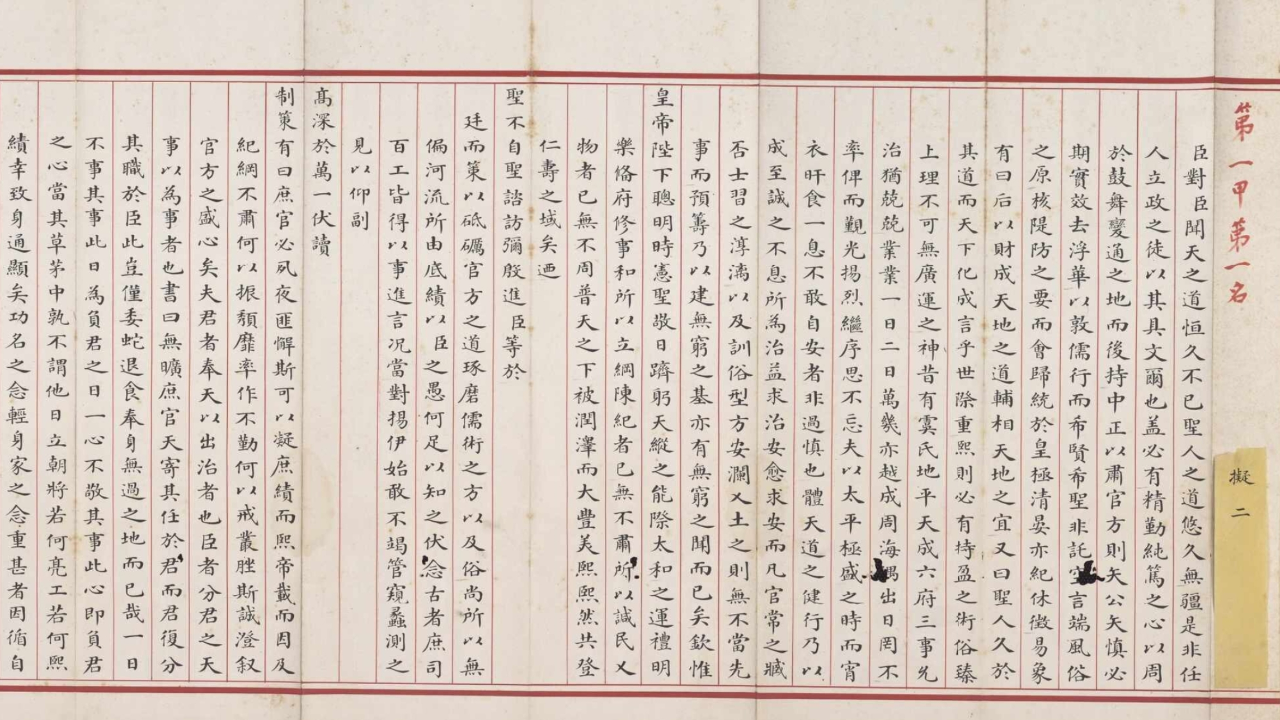 第一甲第一名
擬二
臣對臣聞天之道恒久不已聖人之道悠久無疆是非任
人立政之徒以其具文爾也盖必有精勤純篤之心以周
於鼓舞變通之地而後持中正以肅官方則矢公矢慎必
期實效去浮華以敦儒行而希賢希聖非託空言端風俗
之原核隄防之要而會歸統於皇極清晏亦紀休徵易象
有曰后以財成天地之道輔相天地之宜又曰聖人久於
其道而天下化成言乎世際重熙則必有持盈之術俗臻
上理不可無廣運之神昔有虞氏地平天成六府三事允
治猶兢兢業業一日二日萬幾亦越成周海隅出日罔不
率俾而覲光揚烈繼序思不忘夫以太平極盛之時而宵
衣旰食一息不敢自安者非過慎也體天道之健行乃以
成至誠之不息所為治益求治安愈求安而凡官常之臧
否士習之淳漓以及訓俗型方安瀾乂土之則無不當先
事而預籌乃以建無窮之基亦有無窮之聞而已矣欽惟
皇帝陛下聰明時憲聖敬日躋躬天縱之能際太和之運禮明
樂俻府修事和所以立綱陳紀者已無不肅所以諴民乂
物者已無不周普天之下被潤澤而大豊美熙熙然共登
仁壽之域矣迺
聖不自聖諮訪彌殷進臣等於
廷而策以砥礪官方之道琢磨儒術之方以及俗尚所以無
偏河流所由底績以臣之愚何足以知之伏念古者庶司
百工皆得以事進言况當對揚伊始敢不竭管窺蠡測之
見以仰副
高深於萬一伏讀
制策有曰庶官必夙夜匪懈斯可以凝庶績而熙帝載而因及
紀綱不肅何以振頽靡率作不勤何以戒叢脞斯誠澄叙
官方之盛心矣夫君者奉天以出治者也臣者分君之天
事以為事者也書曰無曠庶官天寄其任於君而君復分
其職於臣此豈僅委蛇退食奉身無過之地而已哉一日
不事其事此日為負君之日一心不敬其事此心即負君
之心當其草茅中孰不謂他日立朝將若何亮工若何熙
績幸致身通顯矣功名之念輕身家之念重甚者因循自